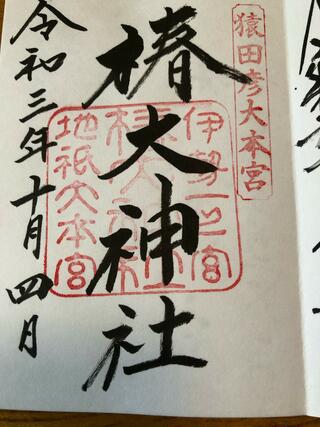 猿田彦大本宮
椿大神社
伊勢一之宮
椿大神社
地祇大本宮
令和三年十月四日